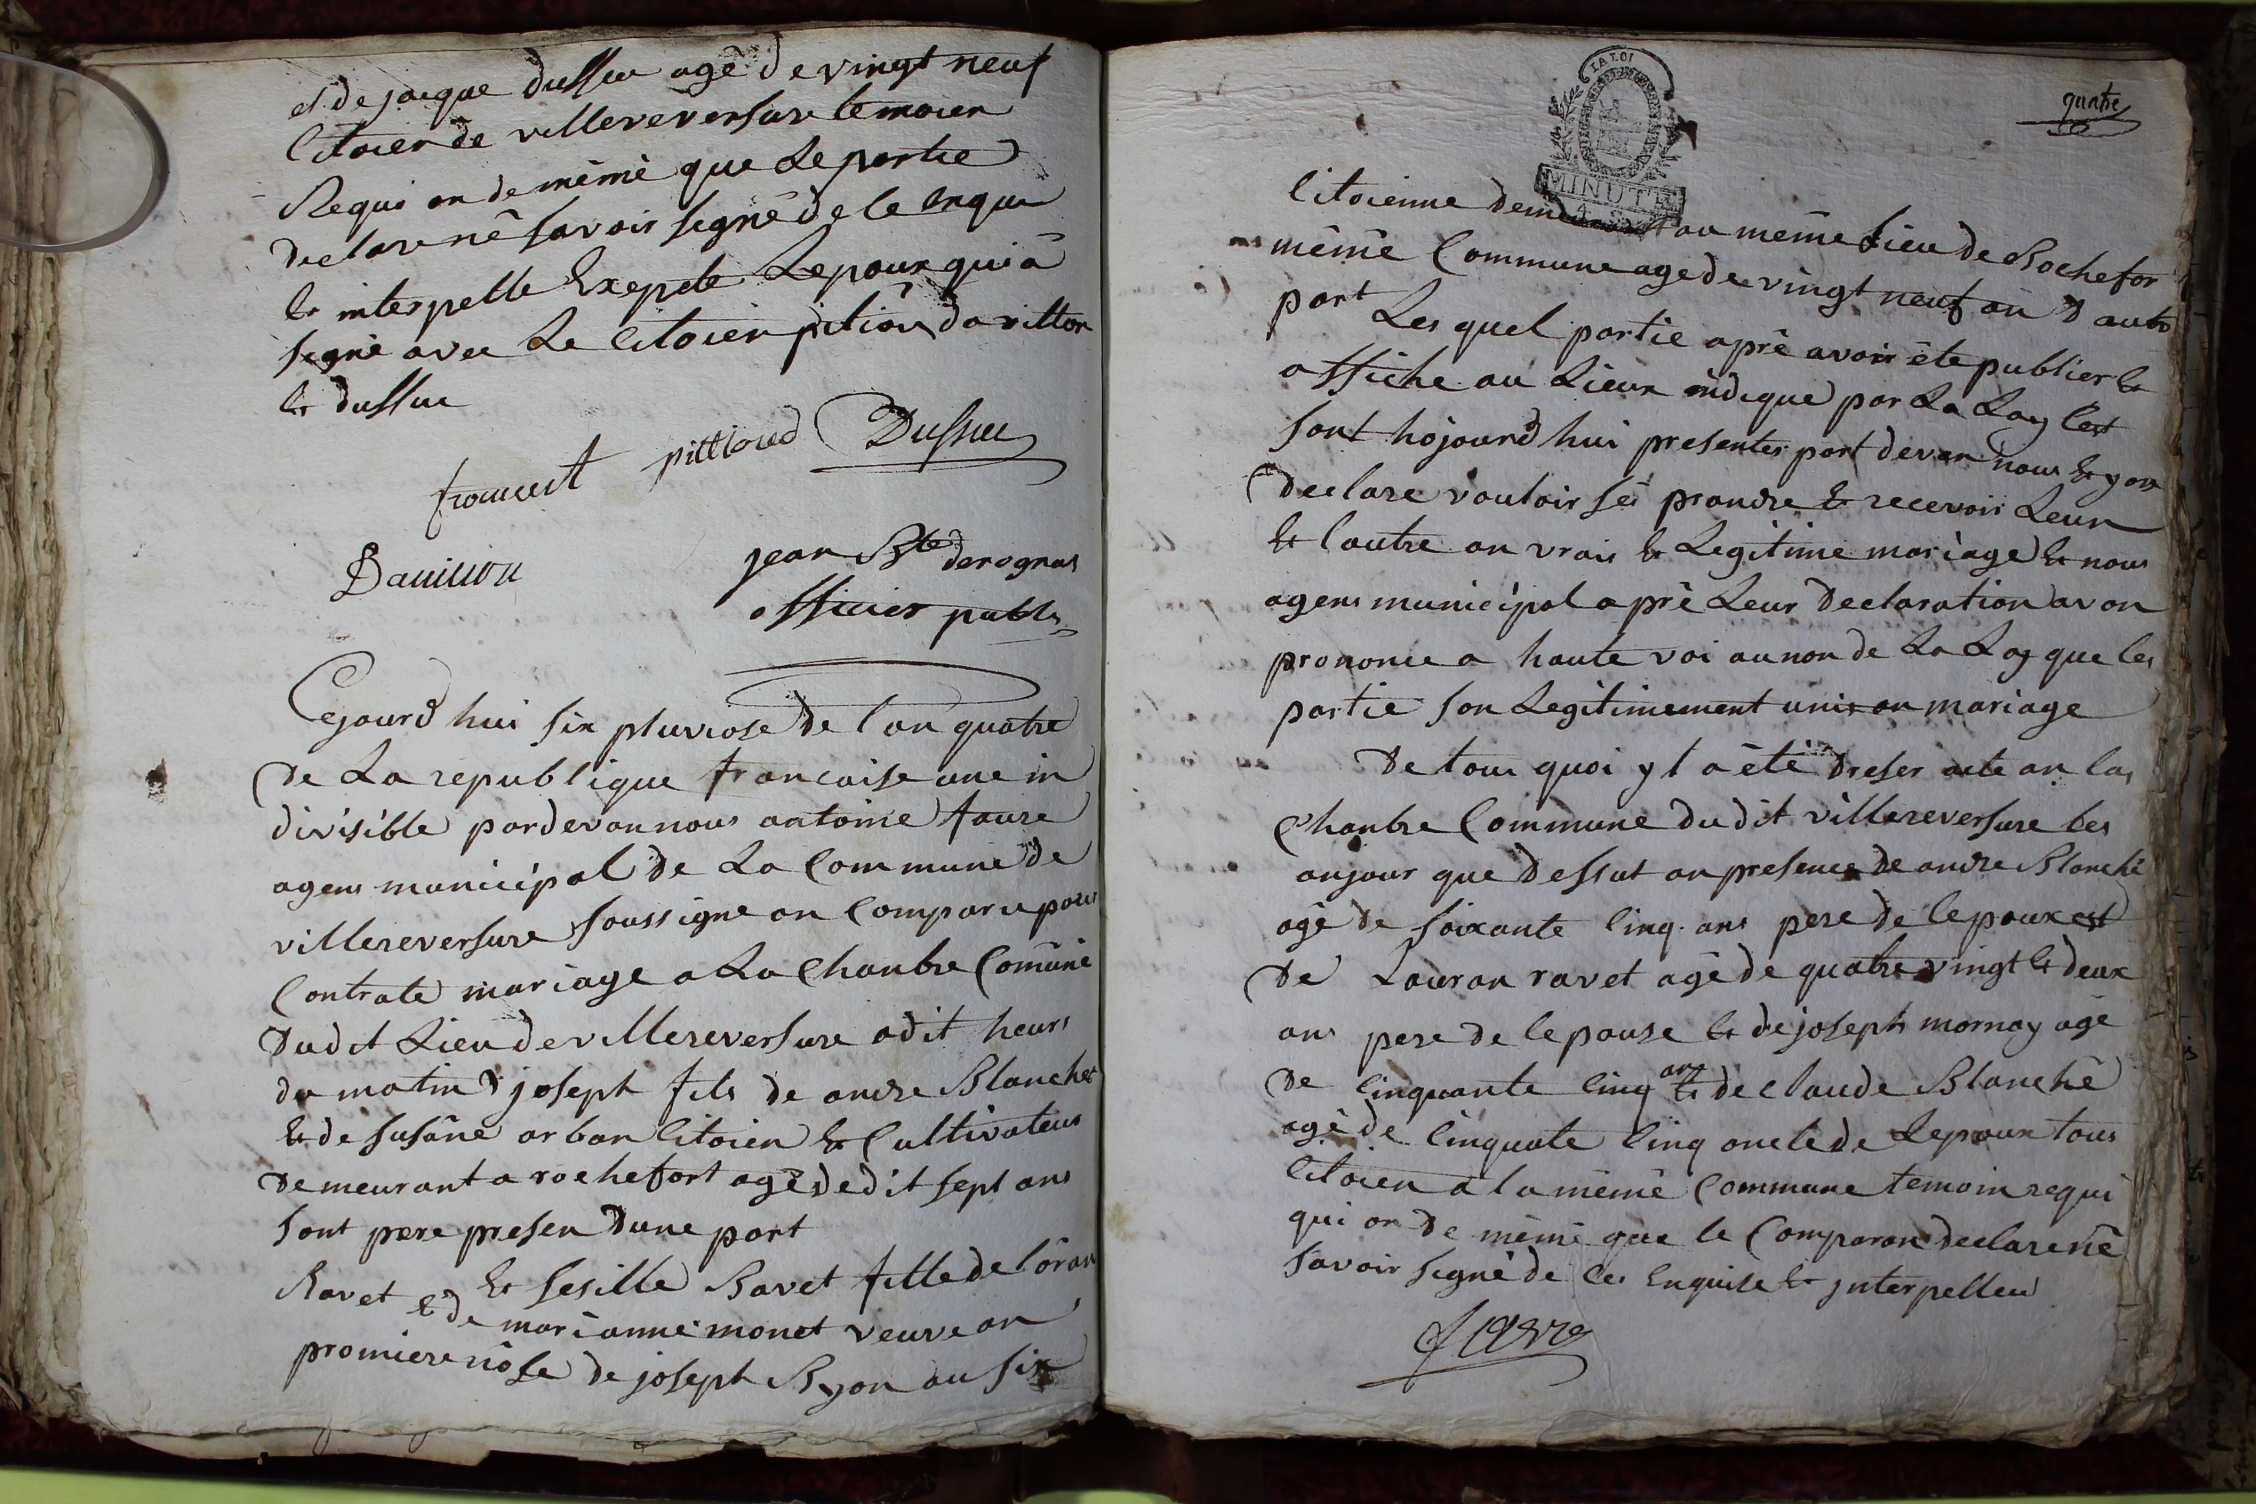 et de jacque dussuc agê de vingt neuf
Citoien de villereversure temoien
Requi on de mêmê que le partie
declare nê savoir segnê de le enqui
et interpelle Exepete Lepoux qui â
segnê avec Le Citoien pition davitton
et dussuc
froment pittioud Dussuc
Davition
jean Bte derognat
officier publi
Cejourd hui six pluviose de l an quatre
de La republique francaise une in
divisible pardevan nous antoine faure
agens municipal de La Commune de
villereversure soussigne on Comparu pour
Contrate mariage a La Chanbre Comûne
dudit Lieu de villereversure a dit heurs
du matin joseph fils de andre Blanchet
et de susâne arban Citoien et Cultivateur
demeurant a rochefort agê de dit sept ans
sont pere presen dune part
et sesille Ravet fille de lôran
Ravet et de marianne monet veuve an
promiere nôse de joseph Ryon au six
quatre
LA LOI
MINUTE
Citoienne demeurant au même Lieu de Rochefor
mêmê Commune age de vingt neuf an d autr
part Les quel partie aprê avoir êté publier et
affiche au Lieux indique par La Loy Cest
sont hojourd hui presenter part devan nous et yon
declare vouloir sei prandre et recevoir Leun
et l autre an vrais et Legitime mariage et nous
agens municipal a prê Leur declaration avon
prononce a haute voi au non de La Loy que les
partie son Legitimement unis an mariage
De tous quoi yl a êtê dreser acte an la
Chanbre Commune dudit villereversure les
anjour que dessut an presence de andre Blanchê
agê de soixante Cinq ans pere de lepoux est
de Louran ravet agê de quatre vingt et deux
ans pere de lepouse et de joseph mornay agê
de Cinquante Cinq ans et de Claude Blanchê
agê de Cinquate Cinq oncle de Lepoux tous
Citoien a la mêmê Commune temoin requi
qui on de mêmê que le Comparan declare nê
savoir segnê de Ces Enquise et ynterpelleu
faure